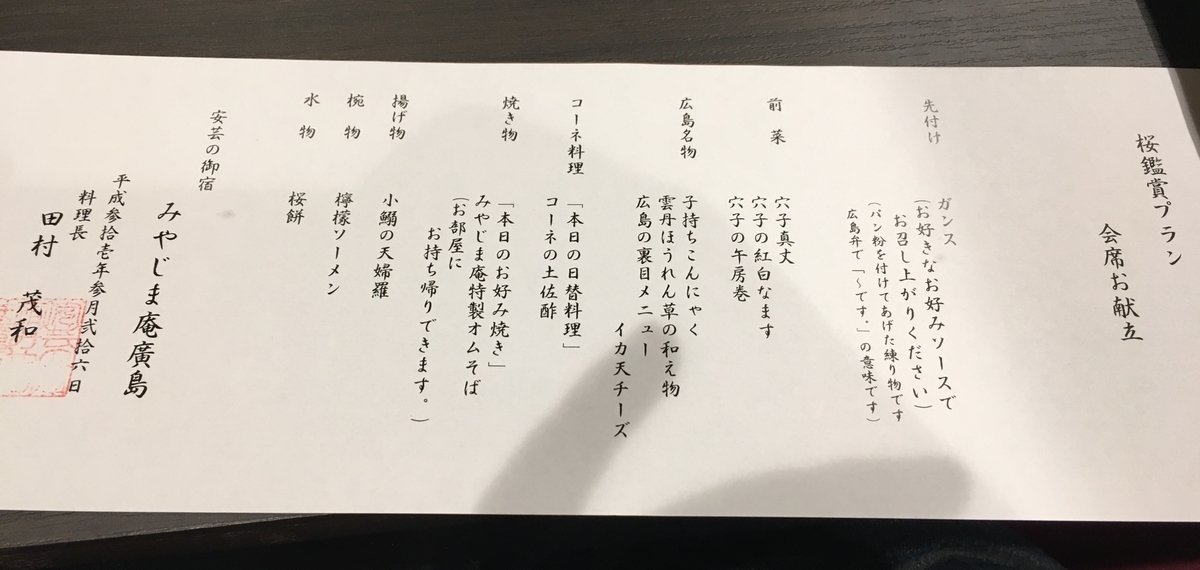 桜鑑賞プラン
会席お献立
先付け
ガンス
(お好きなお好みソースで
お召し上がりください)
(パン粉を付けてあげた練り物です
広島弁で「～です。」の意味です)
前菜
穴子真丈
穴子の紅白なます
穴子の午房巻
広島名物
子持ちこんにゃく
雲丹ほうれん草の和え物
広島の裏目メニュー
イカ天チーズ
コーネ料理
「本日の日替料理」
コーネの土佐酢
焼き物
「本日のお好み焼き」
みやじま庵特製オムそば
(お部屋に
お持ち帰りできます。)
揚げ物
小鰯の天婦羅
椀物
檸檬ソーメン
水物
桜餅
安芸の御宿
みやじま庵廣島
平成参拾壱年参月弐拾六日
料理長
田村 茂和